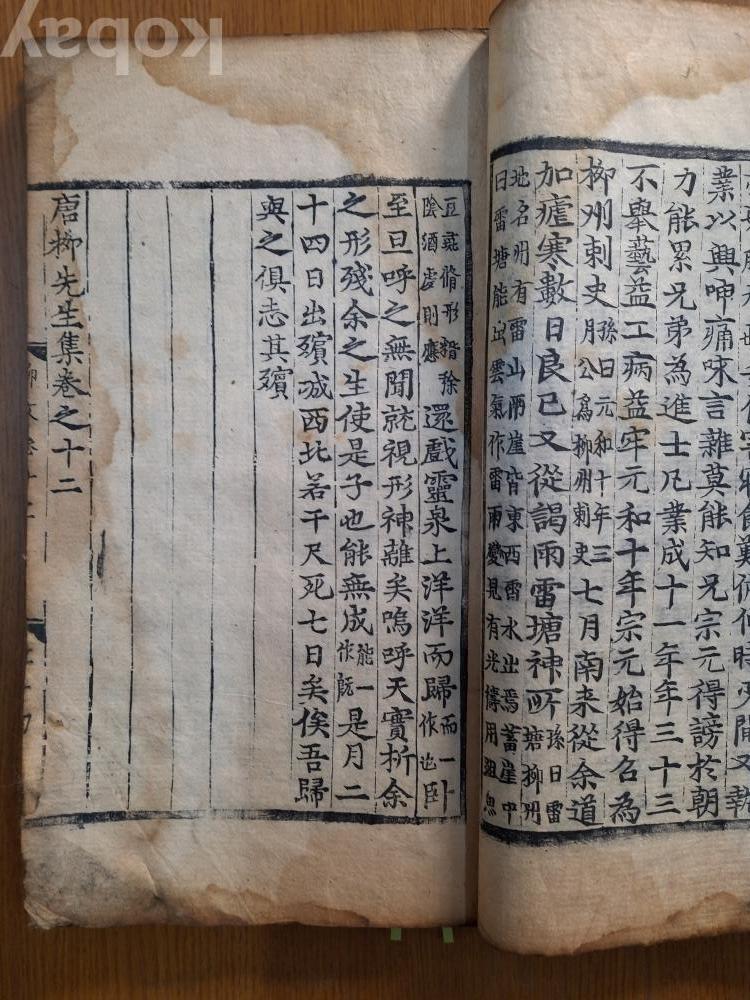 難俯仰時少間又執
業以興呻痛咏言雜莫能知兄宗元得謗於朝
力能累兄弟為進士凡業成十一年年三十三
不舉藝益工病益牢元和十年宗元始得召為
柳州刺史孫曰元和十年三月公爲柳州刺史七月南来從余道
加瘧寒數日良已又從謁雨雷塘神所孫曰雷塘柳州
地名州有雷山兩崖皆東西雷水出焉蓄崖中
曰雷塘能出雲氣作雷雨變見有光禱用俎魚
豆彘脩形糈稌陰酒虔則應還戲靈泉上洋洋而歸而一作也卧
至旦呼之無聞就視形神離矣嗚呼天實析余
之形殘余之生使是子也能無成能一作既是月二
十四日出殯城西北若干尺死七日矣俟吾歸
與之俱志其殯
唐柳先生集卷之十二
kobay